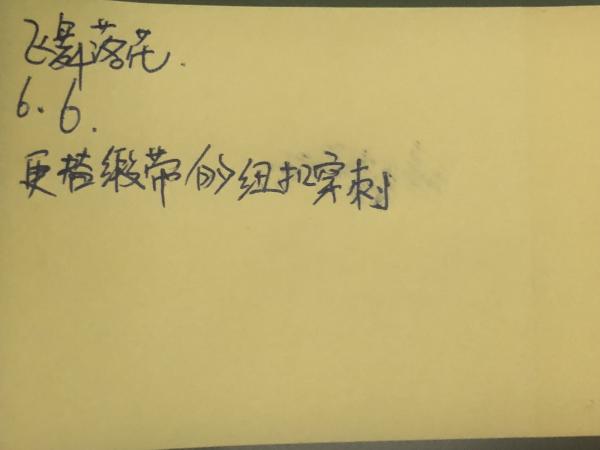 飞舞落花.
6.6.
更搭缎带的纽扣穿刺